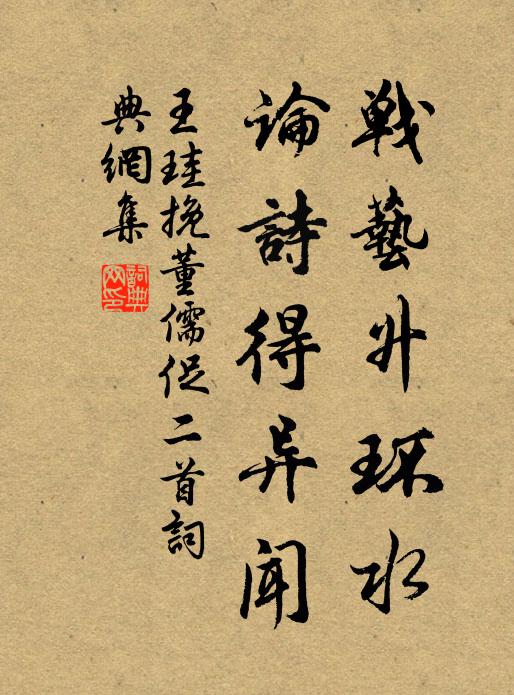 戰藝升環水
論詩得异聞
王珪挽董儒促二首詞
典網集
詞典
网印